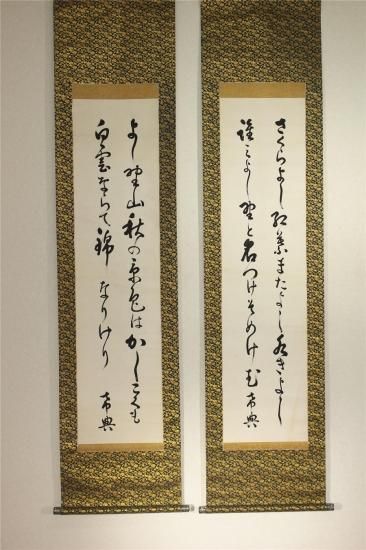 さくらよし紅葉またよし水きよし
誰によし野と名つけそめけむ 常典
よし野山秋の景色はかしこくも
白雲ならて錦なりけり
常典